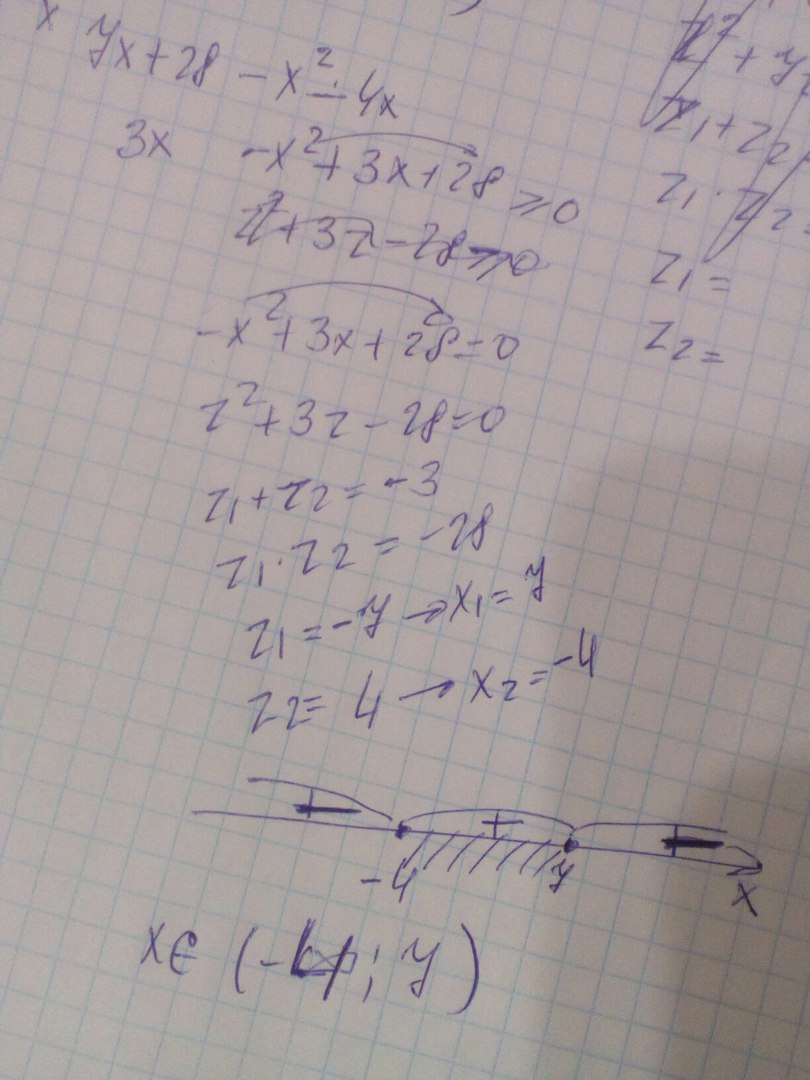 x
7x+28-x²-4x
3x
-x²+3x+28≥0
z²+3z-28≥0
-x²+3x+28=0
z²+3z-28=0
z₁+z₂=-3
z₁·z₂=-28
z₁=-7→x₁=7
z₂=4→x₂=-4
- + -
-4 7 x
x∈(-4;7)
z²+7
z₁+z₂
z₁·z₂=
z₁=
z₂=